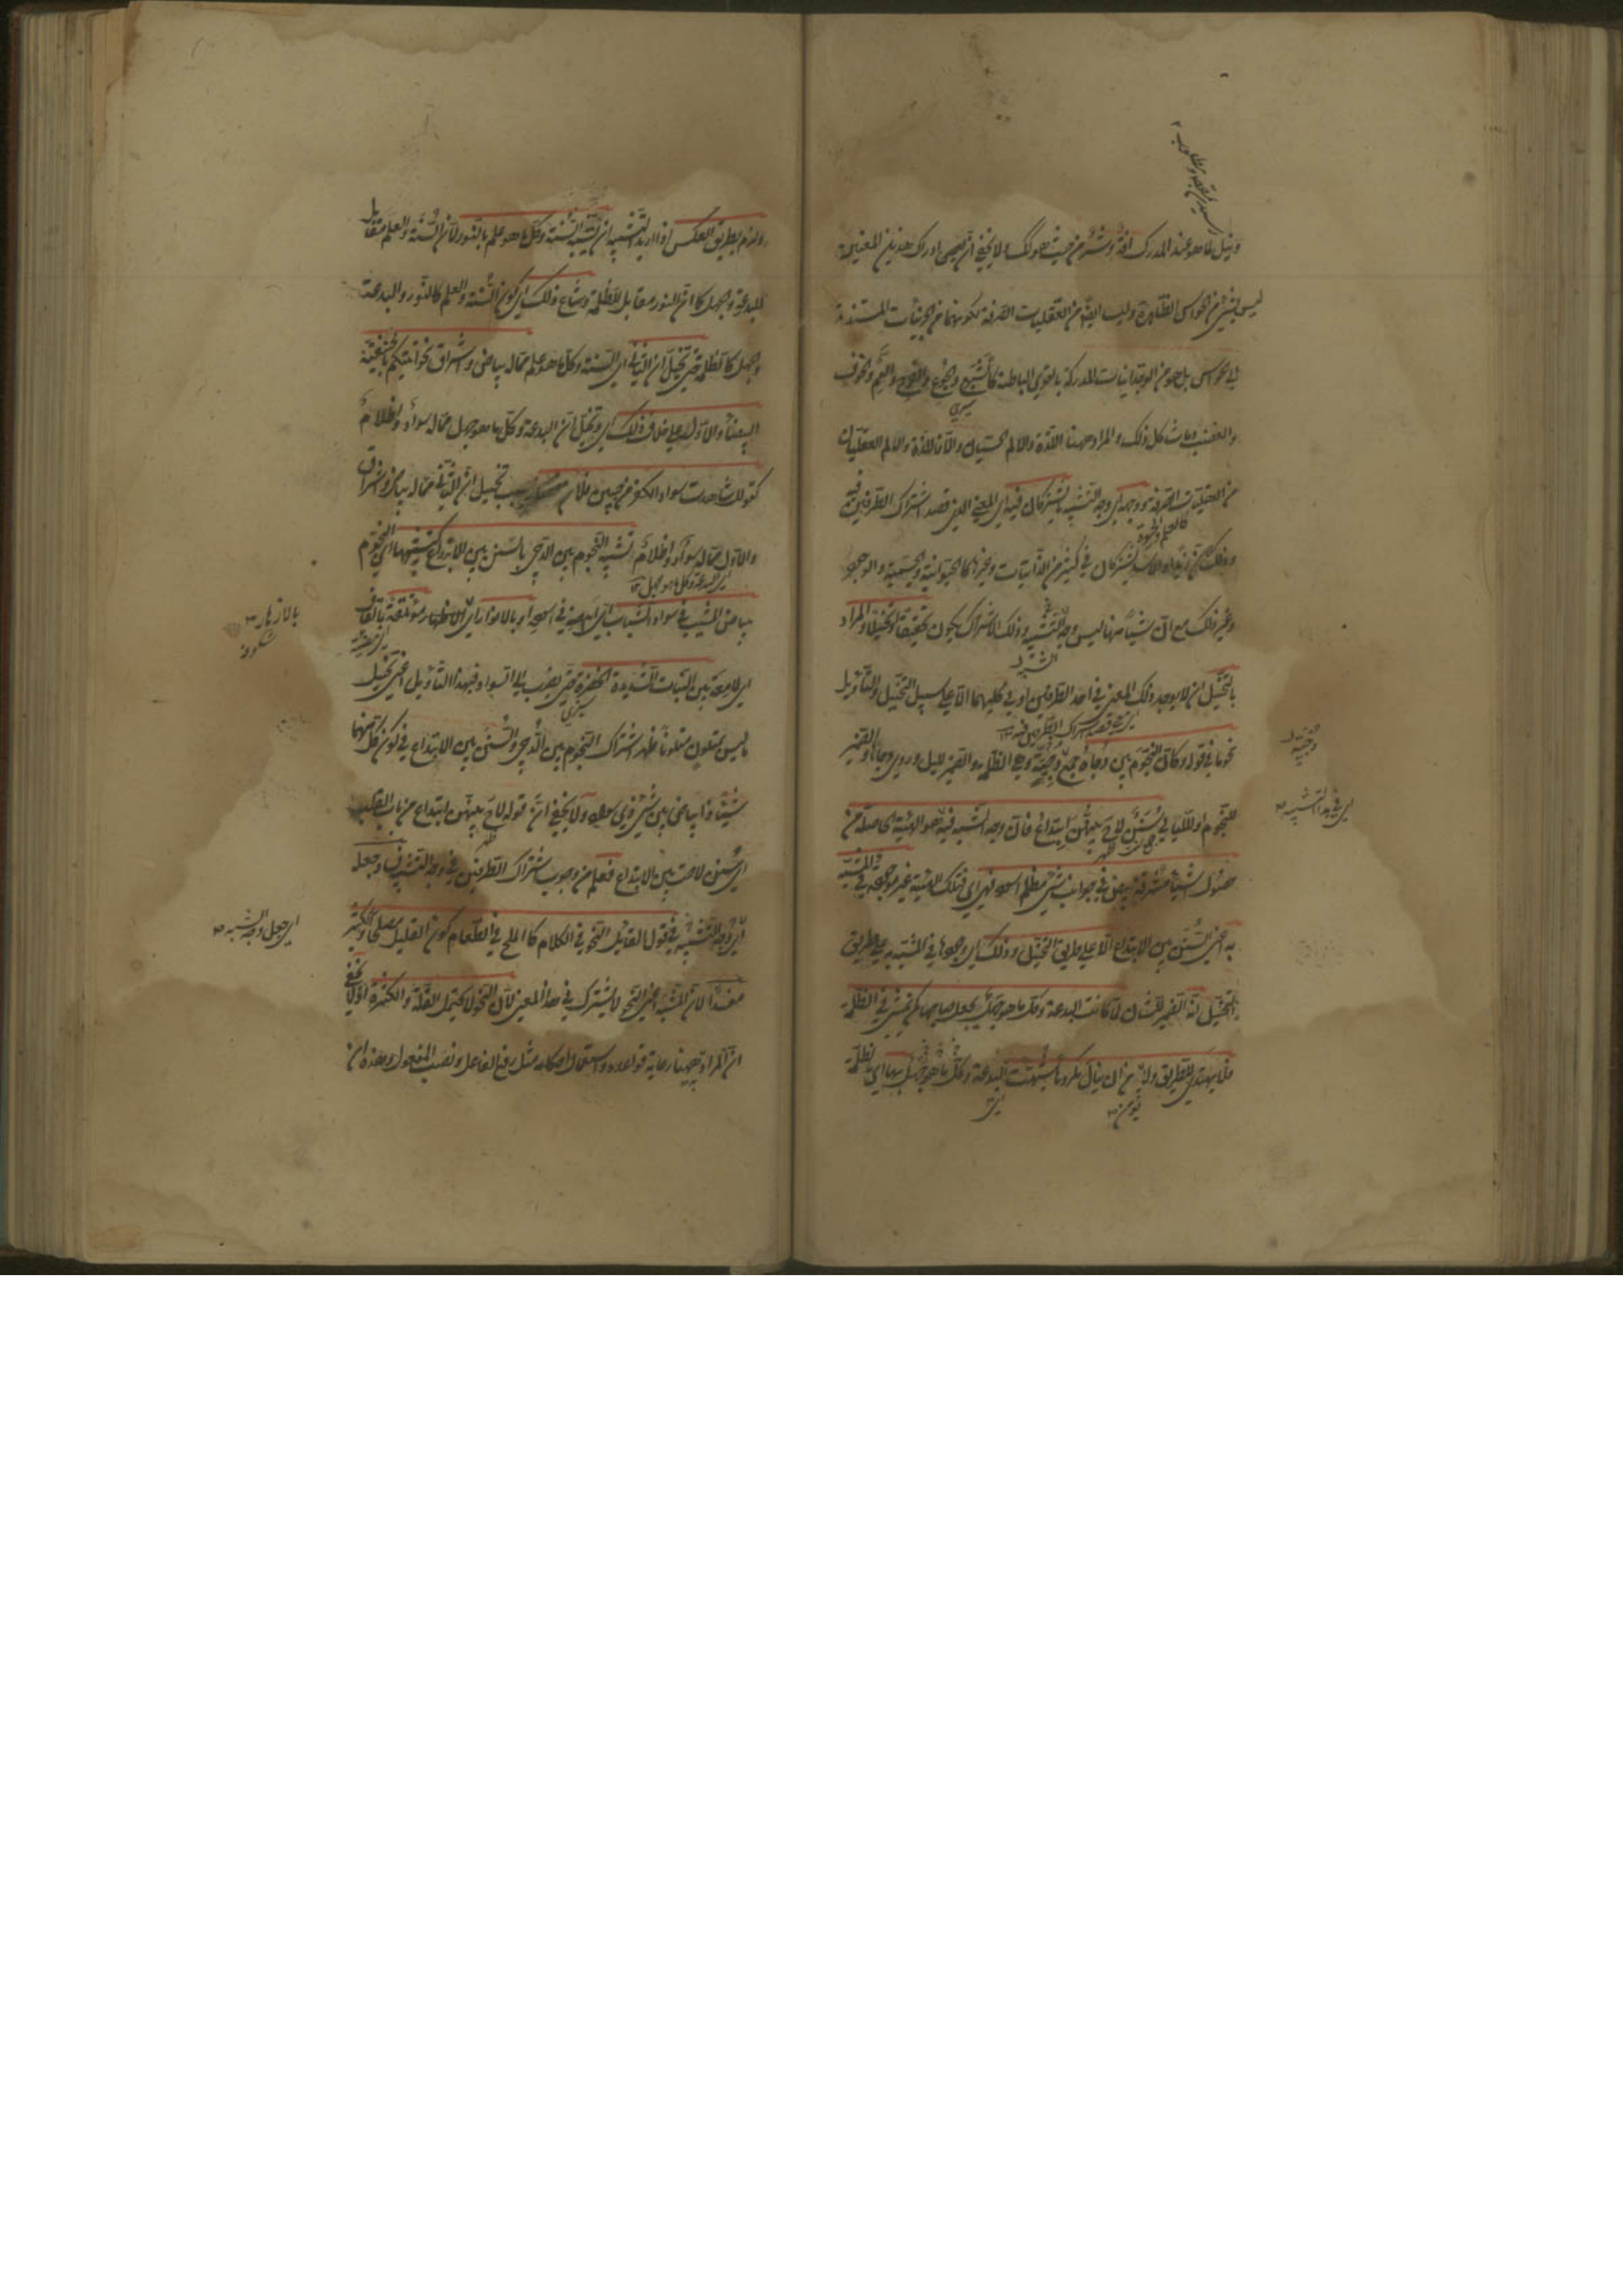 ونيل لما هو عند المدرك آفة وشر من حيث هو كذلك ولا يخفى ان ادراك هذين المعنيين
ليس بشئ من الحواس الظاهرة وليسا ايضا من العقليات الصرفة لكونهما من الجزئيات المستندة
الى الحواس بل هو من الوجدانيات المدركة بالقوى الباطنة كالشبع والجوع والفرح والغم والخوف
والغضب وما شاكل ذلك والمراد ههنا اللذة والالم الحسيان والا فاللذة والالم العقليان
من العقليات الصرفة ووجهه اى وجه التشبيه ما يشتركان فيه اى المعنى الذى قصد اشتراك الطرفين فيه
وذلك ان زيدا والاسد يشتركان فى كثير من الذاتيات وغيرها كالحيوانية والجسمية والوجود
وغير ذلك مع ان شيئا منها ليس وجه التشبيه وذلك الاشتراك يكون تحقيقا او تخييلا والمراد
بالتخييل ان لا يوجد ذلك المعنى فى احد الطرفين او فى كليهما الا على سبيل التخييل والتأويل
نحو ما فى قوله وكان النجوم بين دجاه جمع دجية وهى الظلمة والضمير لليل وروى دجاها والضمير
للنجوم او لليالى سنن لاح بينهن ابتداع فان وجه الشبه فيه هو الهيئة الحاصلة من
حصول اشياء مشرقة بيض فى جوانب شئ مظلم اسود فهى اى تلك الهيئة غير موجودة فى المشبه
به اعنى السنن بين الابتداع الا على طريق التخييل وذلك اى وجودها فى المشبه به على طريق
التخييل انه الضمير للشان لما كانت البدعة وكل ما هو جهل يجعل صاحبها كمن يمشى فى الظلمة
فلا يهتدى للطريق ولا يأمن ان ينال مكروها شبهت البدعة وكل ما هو جهل بها اى بالظلمة
ولزم بطريق العكس اذا اريد التشبيه ان تشبه السنة وكل ما هو علم بالنور لان السنة والعلم مقابل
للبدعة والجهل كما ان النور مقابل للظلمة وشاع ذلك اى كون السنة والعلم كالنور والبدعة
والجهل كالظلمة حتى تخيل ان الثانى اى السنة وكل ما هو علم مما له بياض واشراق نحو اتيتكم بالحنيفية
البيضاء والاول على خلاف ذلك اى وتخيل ان البدعة وكل ما هو جهل مما له سواد واظلام
كقولك شاهدت سواد الكفر من جبين فلان فصار بسبب تخييل ان الثانى مما له بياض واشراق
والاول مما له سواد واظلام تشبيه النجوم بين الدجى بالسنن بين الابتداع كتشبيهها اى النجوم
ببياض الشيب فى سواد الشباب اى ابيضه فى اسوده او بالانوار اى الازهار مؤتلقة بالقاف
اى لامعة بين النبات الشديدة الخضرة حتى يضرب الى السواد فبهذا التأويل اعنى تخييل
ما ليس بمتلون متلونا ظهر اشتراك النجوم بين الدجى والسنن بين الابتداع فى كون كل منهما
شيئا ذا بياض بين شئ ذى سواد ولا يخفى ان قوله لاح بينهن ابتداع من باب القلب
اى سنن لاحت بين الابتداع فعلم من وجوب اشتراك الطرفين فى وجه التشبيه فساد جعله
اى وجه التشبيه فى قول القائل النحو فى الكلام كالملح فى الطعام كون القليل مصلحا والكثير
مفسدا لان المشبه اعنى النحو لا يشترك فى هذا المعنى لان النحو لا يحتمل القلة والكثرة اذ لا يخفى
ان المراد به ههنا رعاية قواعده واستعمال احكامه مثل رفع الفاعل ونصب المفعول وهذه ان
بالازهار
شكوفه
اى جعل وجه الشبه